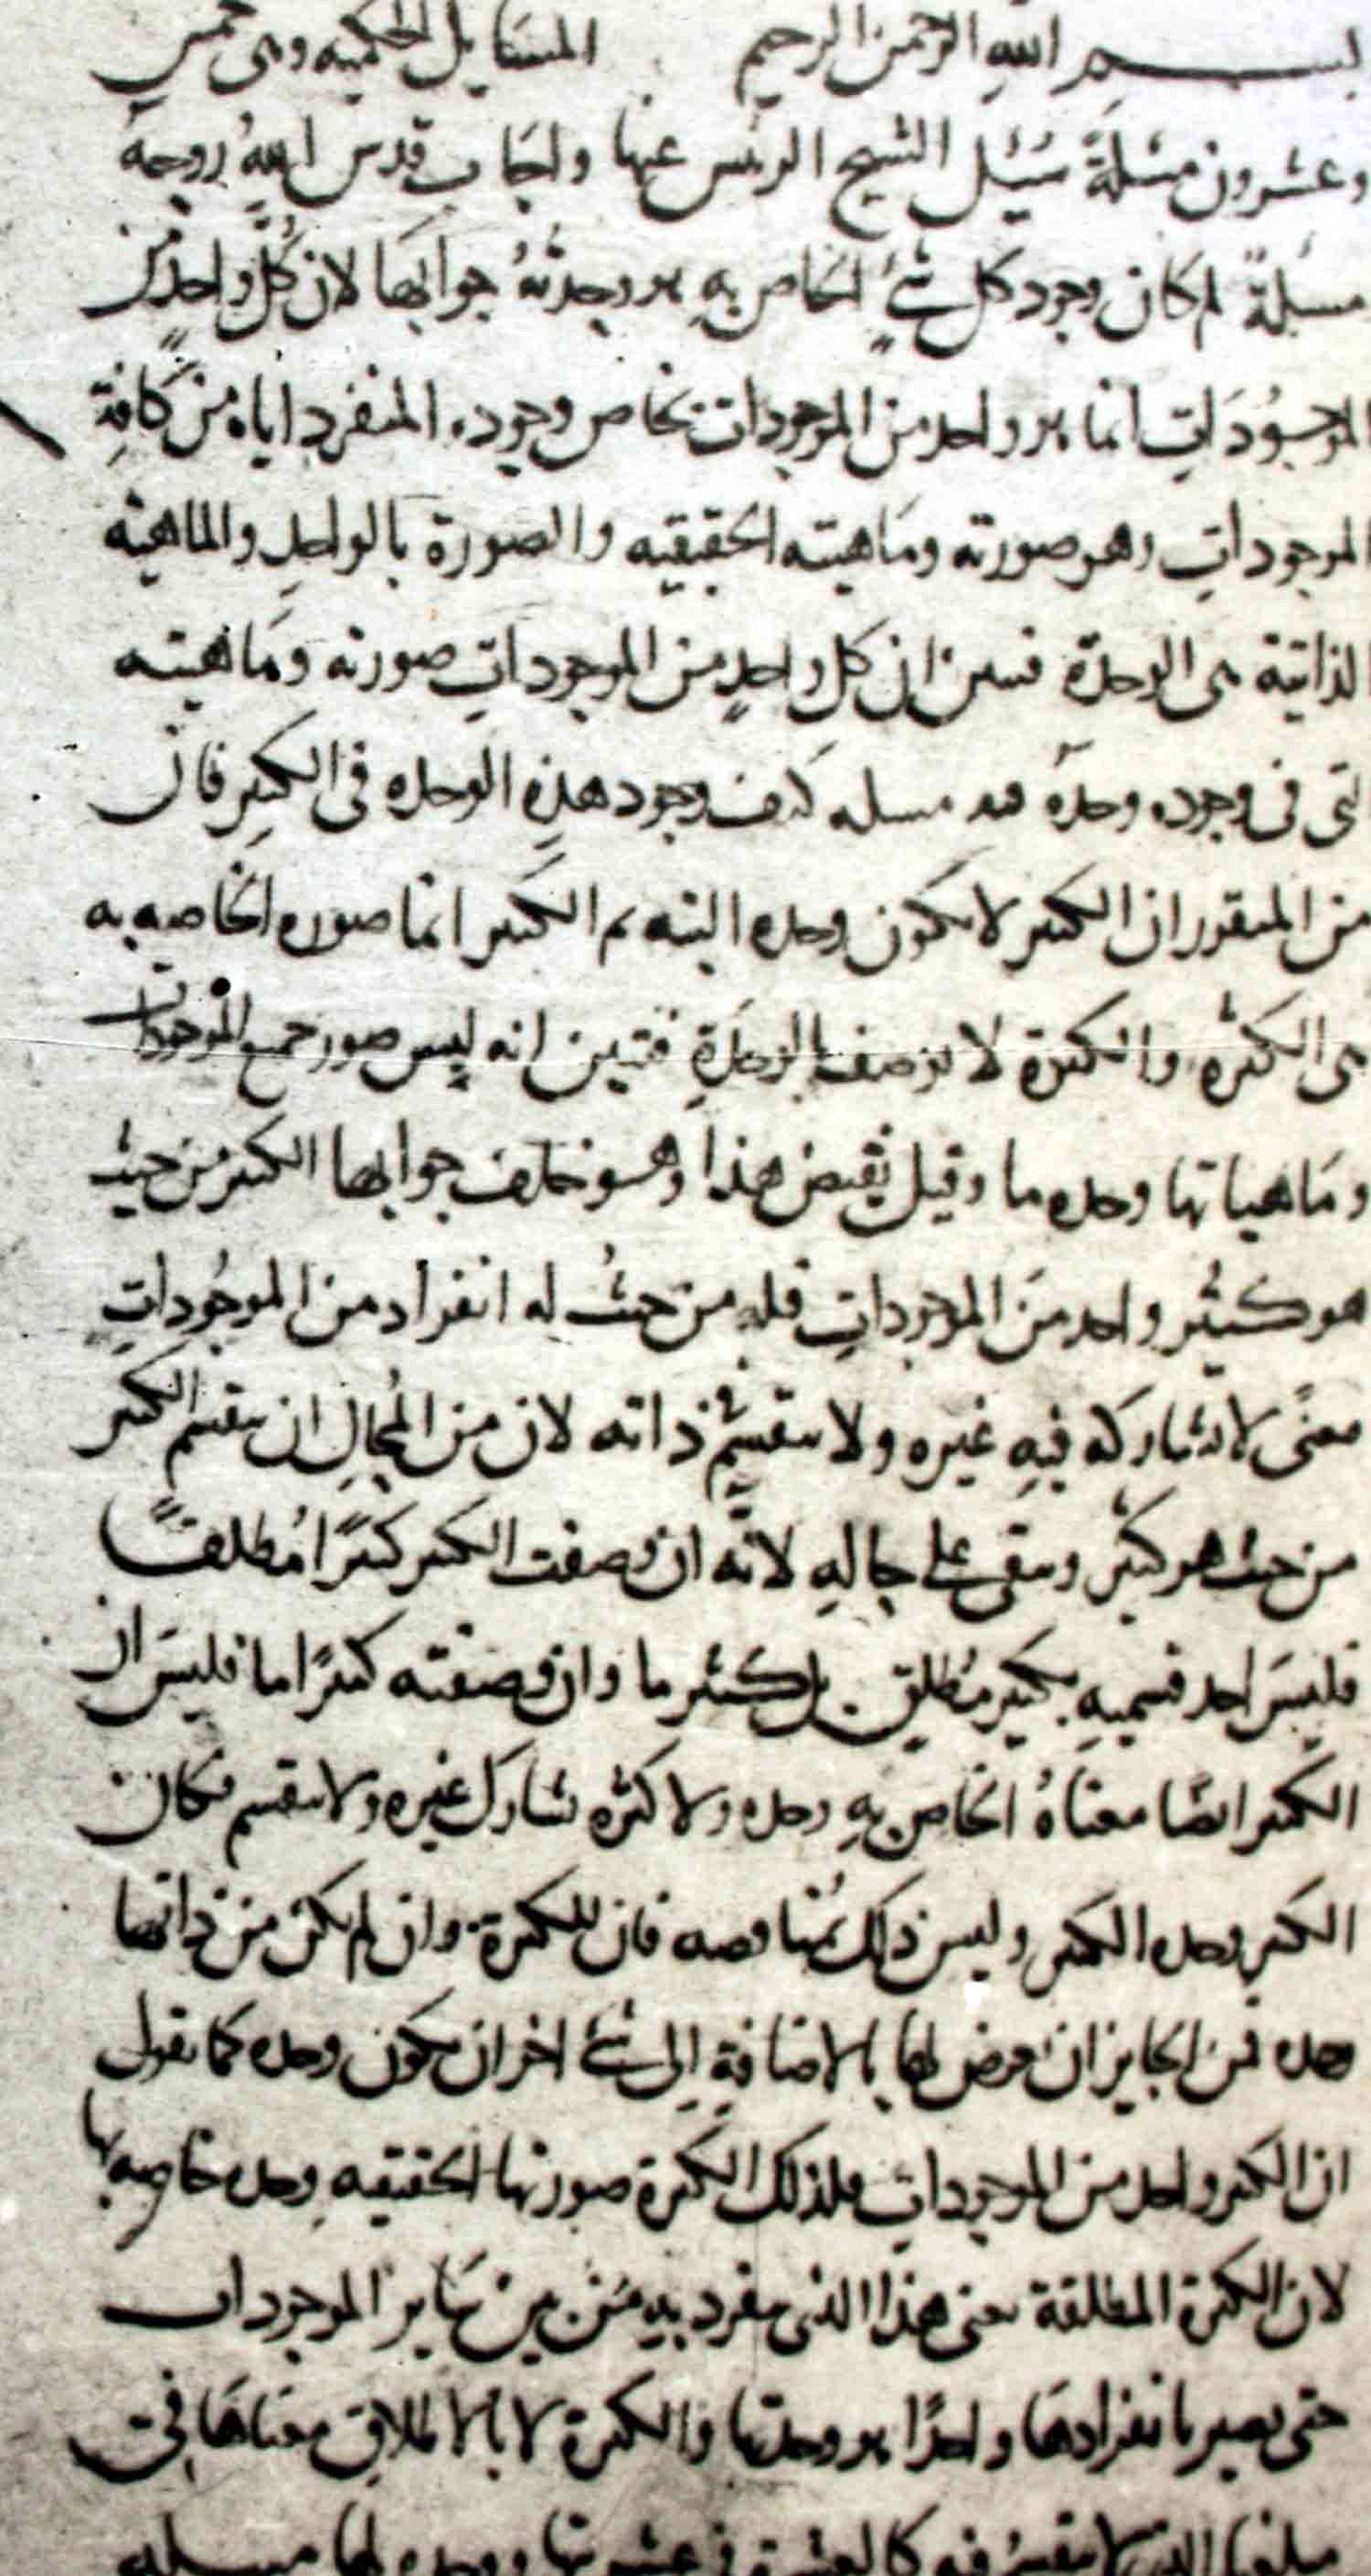 بسم الله الرحمن الرحيم المسايل الحكميه وهى خمس
وعشرون مسئلة سئيل الشيخ الرئيس عنها واجاب قدس الله روحه
مسئلة لم كان وجود كل شئ الخاص به هو وحدته جوابها لان كل واحد من
الموجودات انما هو واحد من الموجودات بخاص وجوده المنفرد اياه من كافة
الموجودات وهو صورته وماهيته الحقيقيه والصورة بالواحد والماهية
الذاتية هى الوحدة فتبين ان كل واحد من الموجودات صورته وماهيته
التى فى وجوده وحدة مسله كيف وجود هذه الوحده فى الكثير فان
من المتقرر ان الكثير لا يكون وحده البته ثم الكثير انما صوره الخاصه به
هى الكثره والكثرة لا توصف بالوحدة فتبين انه ليس صور جميع الموجودات
وماهياتها وحده ما وقيل نقيض هذا وهو خلف جوابها الكثير من حيث
هو كثير واحد من الموجودات فله من حيث له انفراد من الموجودات
معنى لا يشاركه فيه غيره ولا ينقسم فى ذاته لان من المحال ان ينقسم الكثير
من حيث هو كثير ويبقى على حاله لانه ان وصفت الكثير كثيرا مطلقا
فليس احد قسميه بكثير مطلق بل كثير ما وان وصفته كثيرا ما فليس ان
الكثير ايضا معناه الخاص به وحده ولا كثره تشارك غيره ولا ينقسم فكان
الكثير وحده الكثير وليس ذلك بمناقضه فان للكثرة وان لم يكن من ذاتها
وحده فمن الجايز ان يعرض لها بالاضافة الى شئ اخر ان يكون وحده كما نقول
ان الكثير واحد من الموجودات فلذلك الكثرة صورتها الحقيقيه وحده خاصه بها
لان الكثرة المطلقة معنى هذا الذى ينفرد به من بين ساير الموجودات
حتى يصير بانفرادها واحدا هو وحدتها والكثرة لا بالاطلاق معناها فى